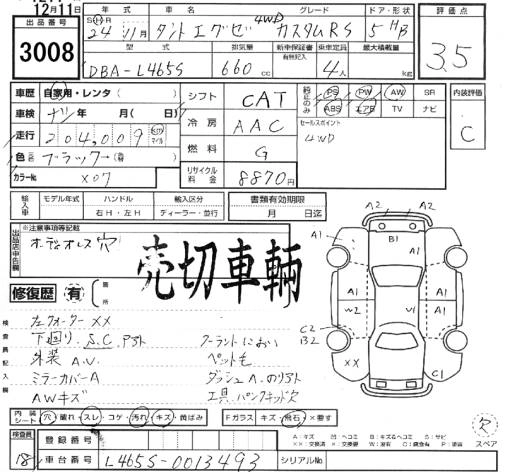 12月11日
出品番号
3008
年式 グレード ドア・形状
SH 24年11月 タントエグゼ 4WD カスタムRS 5 HB
型式 排気量 新車保証書 乗車定員 最大積載量
有無記入
DBA-L465S 660cc 4人 kg
評価点
3.5
車歴 自家用・レンタ( )
車検 ナシ年 月( 日)
走行 204,009 km マイル
色 ブラック→(有)
カラーNo X07
シフト CAT
冷房 AAC
燃料 G
リサイクル料金 8870円
純正のみ PS PW AW SR
ABS エアB TV ナビ
セールスポイント
4WD
内装評価
C
輸入車 モデル年式 ハンドル 輸入区分
年 右H・左H ディーラー・並行
書類有効期限
月 日迄
出品店申告欄 ※注意事項等記載
オーディオレス穴
売切車輌
修復歴 有 箇所
検査員記入欄
クォーターXX
下回り、S,C,Pアト
外装A,U,
ミラーカバーA
AWキズ
クーラントにおい
ペット毛
ダッシュA、のりアト
工具、パンクキット欠
A2 A2
A1 B1 A1
A1 A1
W2 V1
C2
B2
XX C1
内装シート 穴・破れ・スレ・コゲ・汚れ・キズ・黄ばみ
Fガラス キズ・飛石・×要す
欠
スペア
検査員
18
登録番号
車台番号 L465S-0013493
シリアルNo.